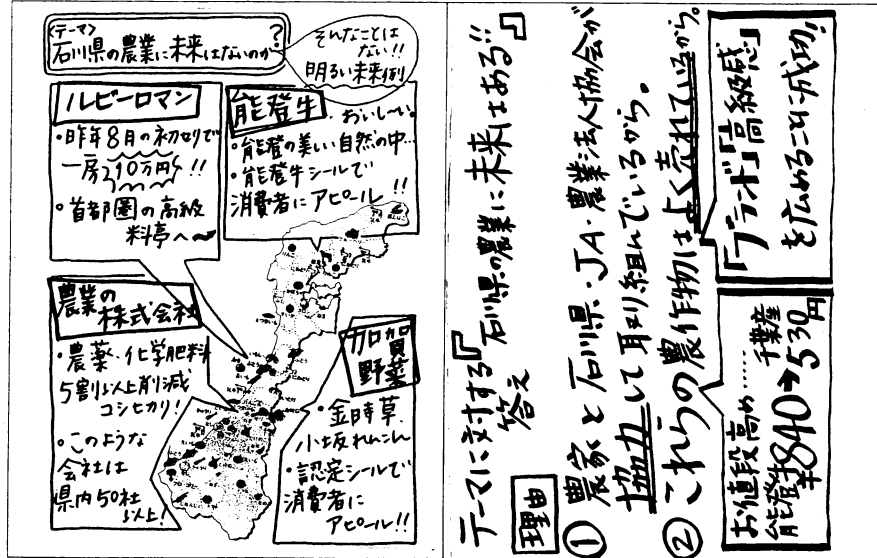 〈テーマ〉
石川県の農業に未来はないのか?
そんなことは
ない!!
明るい未来例
ルビーロマン
・昨年8月の初セリで
一房210万円!!
・首都圏の高級
料亭へ
能登牛
おいし〜い。
・能登の美しい自然の中…
・能登牛シールで
消費者にアピール!!
農業の
株式会社
・農薬・化学肥料
5割以上削減
コシヒカリ!
・このような
会社は
県内50社
以上!
加賀
野菜
・金時草
小坂れんこん
・認定シールで
消費者に
アピール!!
テーマに対する
答え
『石川県の農業に未来はある!!』
理由
①農家と石川県・JA・農業法人協会が
協力して取り組んでいるから。
②これらの農作物はよく売れているから。
「ブランド」「高級感」
を広めることに成功!!
お値段高め……千葉産
能登牛840→530円